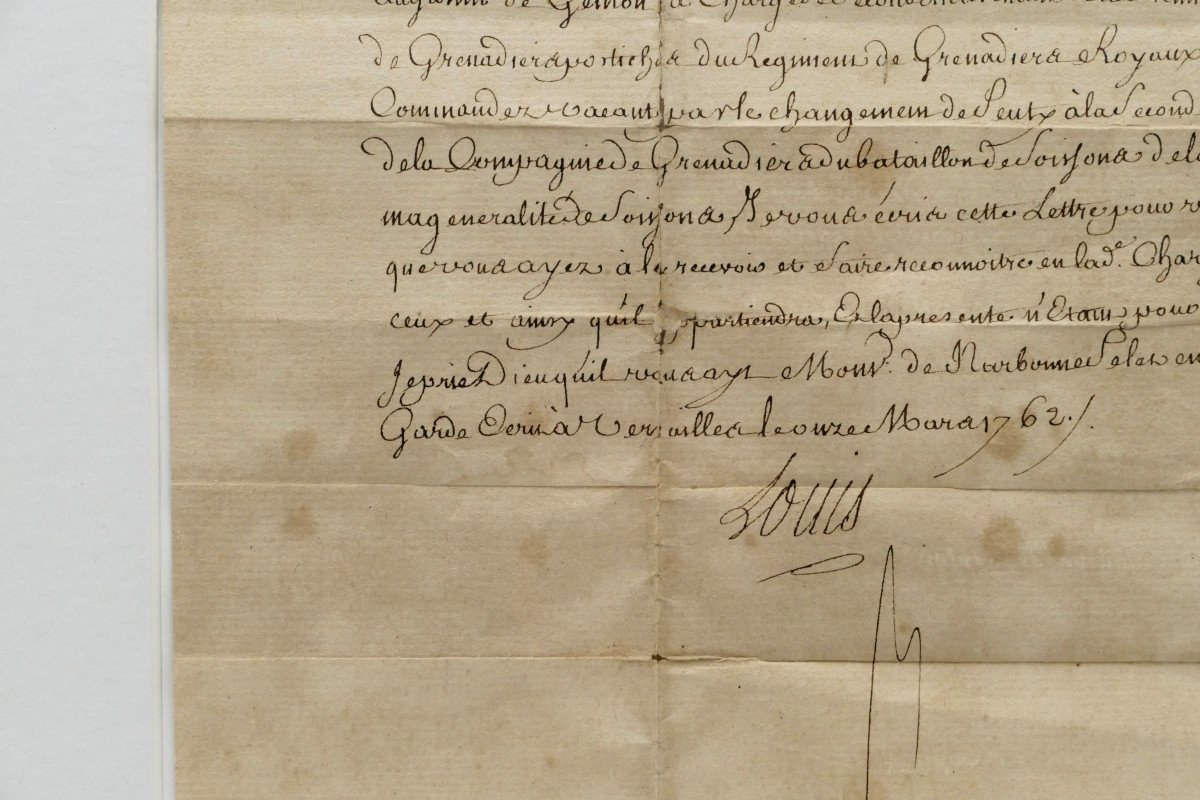 de Gemon la Charge de
de Grenadiers postiches du Regiment de Grenadiers Royaux
Commandez vacant par le changement de Peutx à la Second
de la Compagnie de Grenadiers du bataillon de Soissons de la
ma generalité de Soissons, Je vous écris cette Lettre pour v
que vous ayez à le recevoir et faire reconnoitre en lad.e Char
ceux et ainsy qu'il partiendra, Et la presente n'Etant pour
Je prie Dieu qu'il vous ayt Mons.r de Narbonne Pelet en
Garde Ecrit à Versailles le onze Mars 1762./.
Louis